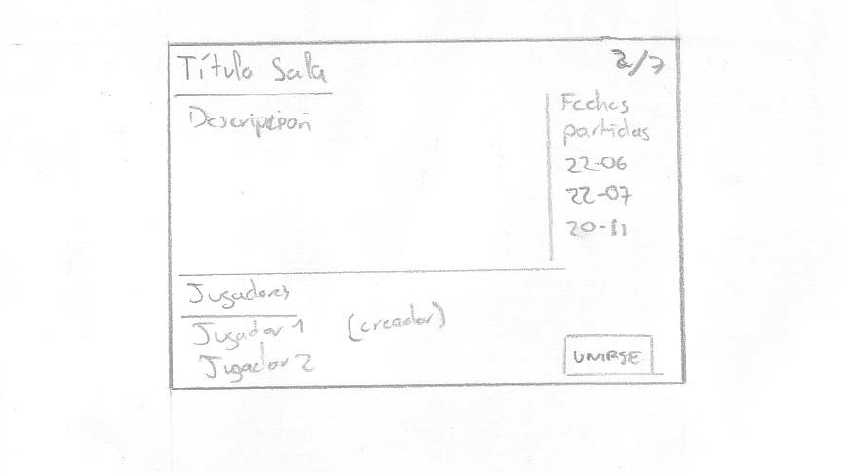 Título Sala
2/7
Descripcion
Fechas
partidas
22-06
22-07
20-11
Jugadores
Jugador 1 (creador)
Jugador 2
UNIRSE